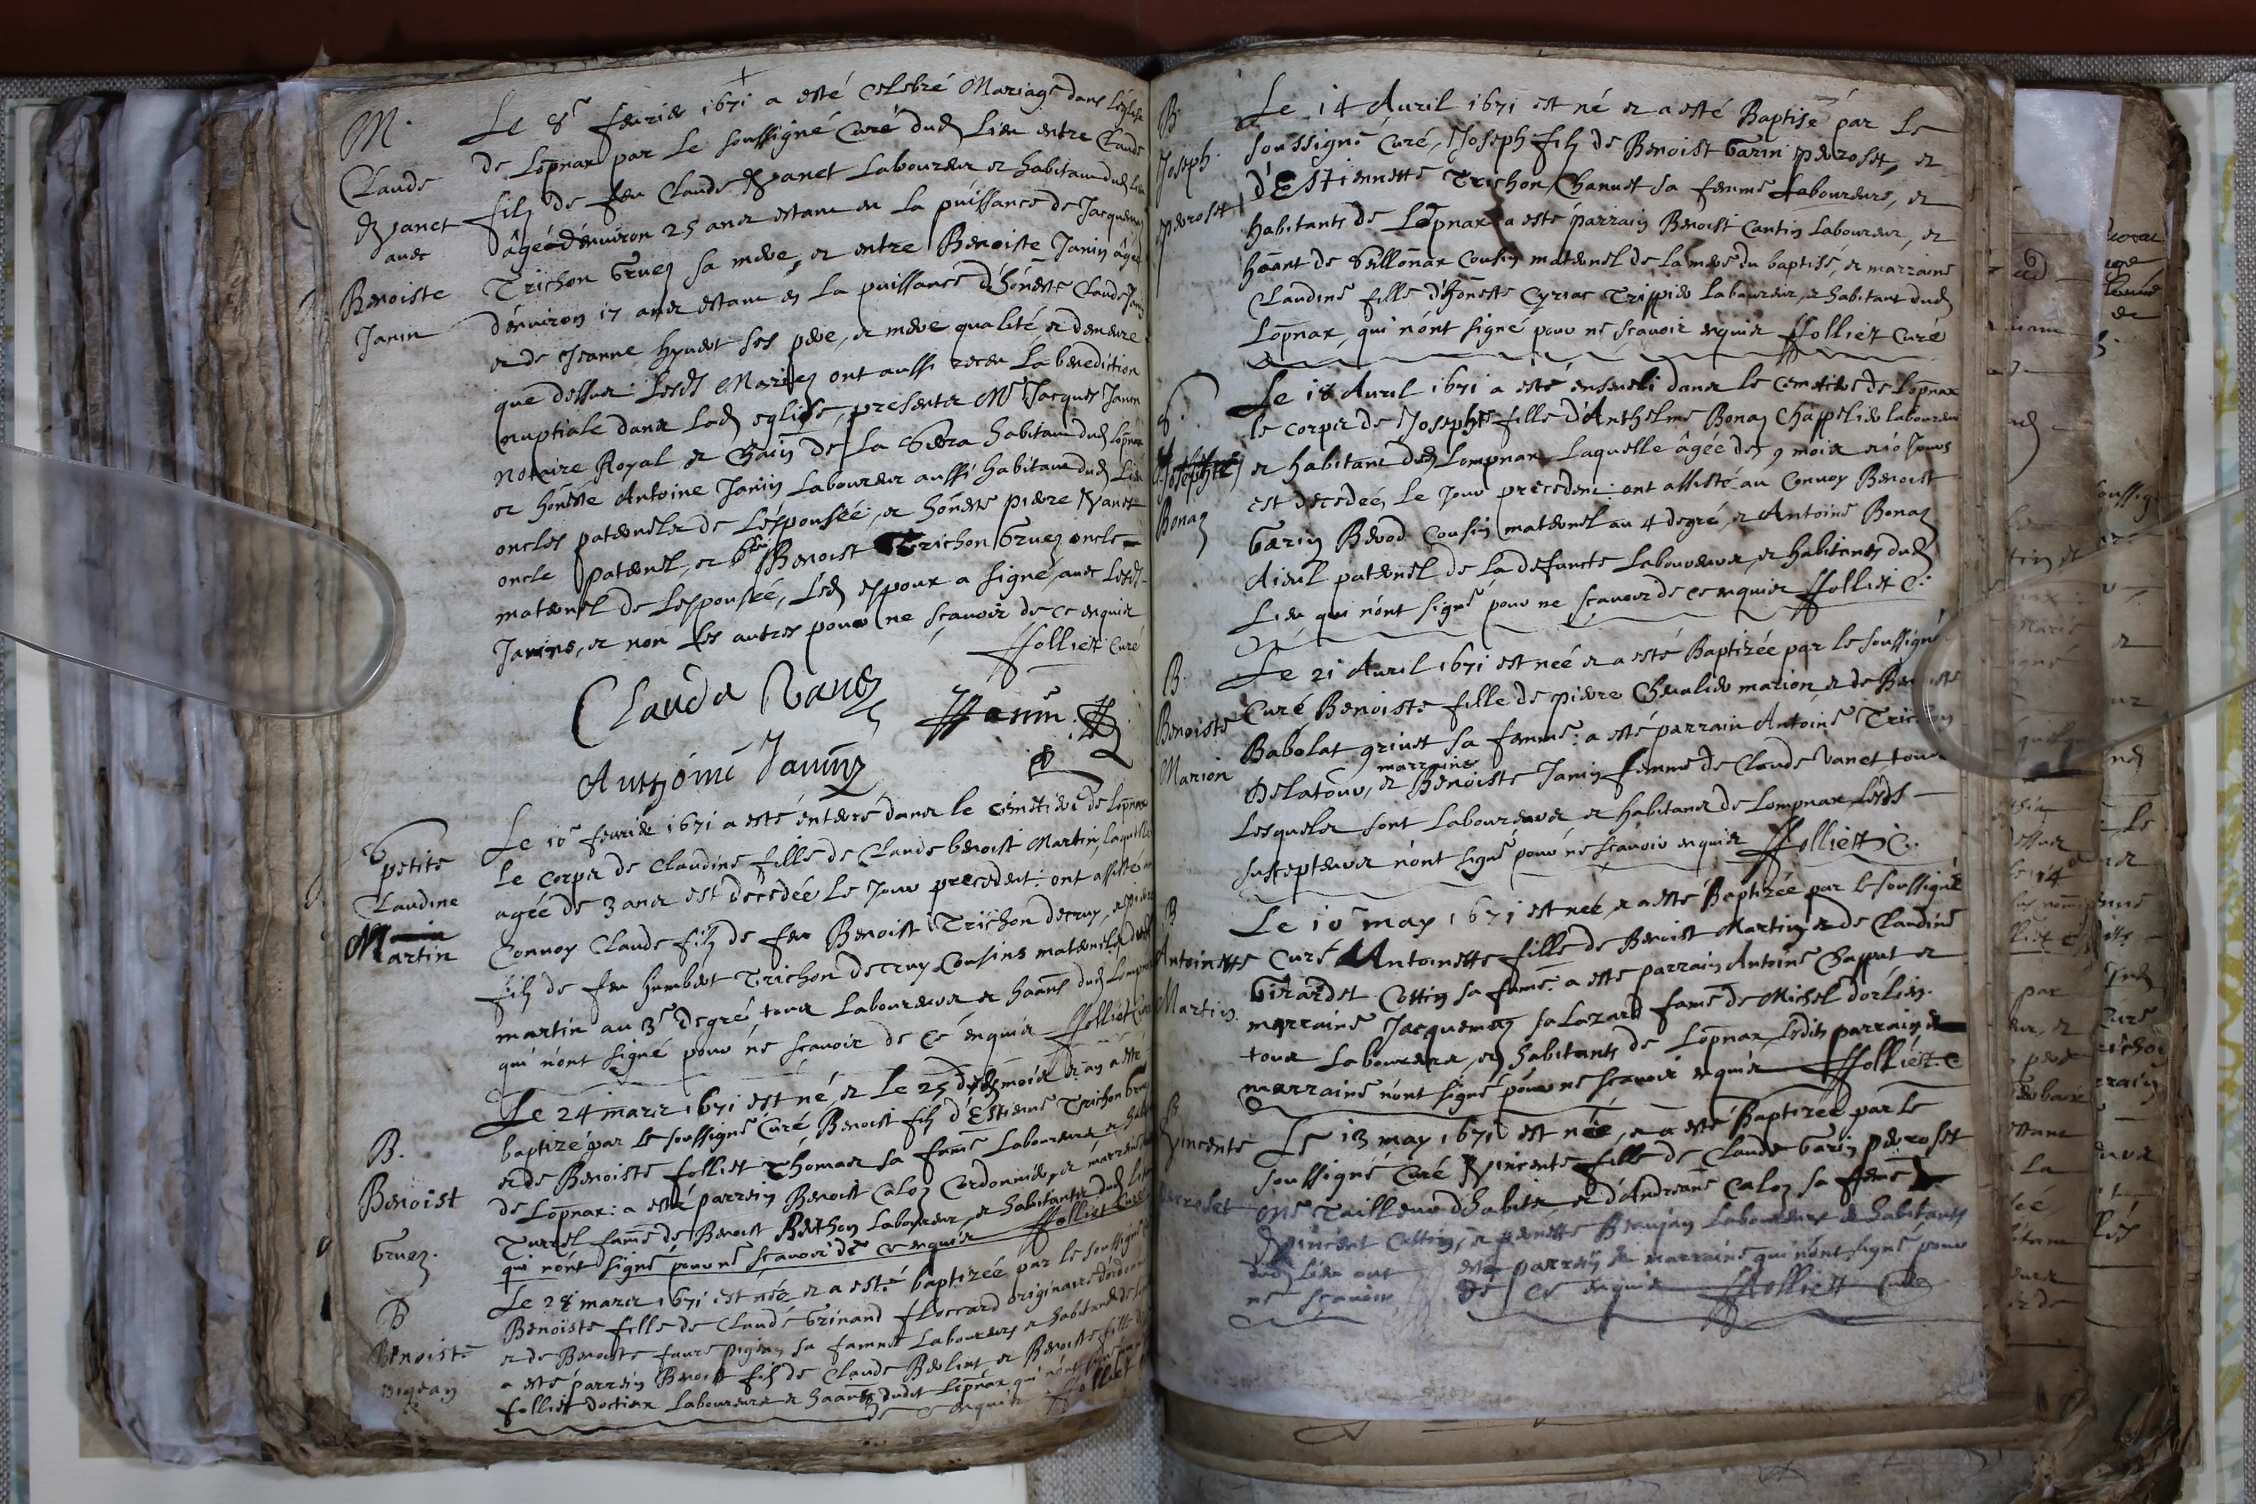 M.
Claude
Vanet
avec
Benoiste
Janin
Le 8e fevrier 1671 a esté celebré Mariage dans l'eglise
de Lopnax par le soussigné Curé dud lieu entre Claude
filz de feu Claude Vanet Laboureur et habitant dud lieu
âgé d'environ 25 ans estant en la puissance de Jacquema
Trichon Gruez sa mere, et entre Benoiste Janin âgée
d'environ 17 ans estant en la puissance d'honeste Claude Janin
et de Jeanne hyvert ses pere, et mere qualité et demeure
que dessus: Lesds Mariez ont aussi receu la benediction
nuptiale dans Lad eglise, presents Mr Jacques Janin
Notaire Royal et de la Serra habitant dud Lopnax
et honeste Antoine Janin Laboureur aussi habitant dud Lieu
oncles paternels de L'espousée, et honeste pierre Vanet
oncle paternel, et Benoist Trichon Gruez oncle
maternel de L'espousé, Led espoux a signé, avec Lesds
Janins, et non les autres pour ne sçavoir de ce enquis
ffolliet Curé
Claude Vanez
Janin
Anthoine Janin
petite
Claudine
Martin
Le 10e fevrier 1671 a esté enterré dans le cemetiere de Lopnax
le corps de Claudine fille de Claude benoist Martin, Laquelle
agée de 3 ans est decedée le jour precedent: ont assisté au
Convoy Claude filz de feu Benoist Trichon decruy, et pierre
filz de feu humbert Trichon decruy Cousins maternels dud
martin au 3e degré, tous Laboureurs et haants dud Lompnax
qui n'ont signé pour ne sçavoir de ce enquis ffolliet Curé
B.
Benoist
Gruez.
Le 24 mars 1671 est né, et le 25 desd mois et an a esté
baptizé par le soussigné Curé Benoist filz d'Estienne Trichon Gruez
et de Benoiste folliet Thomas sa fame Laboureurs et habitants
de Lopnax: a esté parrein Benoist Caloz Cordonnier, et marreine
Turrel fame de Benoist Berthon Laboureur, et habitants dud Lieu
qui n'ont signé pour ne sçavoir de ce enquis ffolliet Curé
B
Benoiste
pigean
Le 28 mars 1671 est née et a esté baptizée par le soussigné
Benoiste fille de Claude Grinand floccard originaire
et de Benoiste faure pigean sa famme Laboureurs et habitants de
a esté parrein Benoist filz de Claude Berlint et Benoiste fille
folliet doctier Laboureurs et haants dudit Lopnax qui n'ont signé pour
de ce enquis ffolliet
B
Joseph
perroset
Le 14 Avril 1671 est né et a esté Baptisé par Le
soussigné Curé, Joseph filz de Benoist Garin perroset, et
d'Estiennette Trichon Chanuet sa femme Laboureurs, et
habitants de Lopnax a esté parrain Benoist Cantin Laboureur, et
haant de Cousin maternel de la mere du baptisé, et marraine
Claudine fille d'honeste Cyriac Trippier Laboureur, et habitant dud
Lopnax, qui n'ont signé pour ne scavoir enquis ffolliet Curé
S.
Josephte
Bonaz
Le 18 Avril 1671 a esté enseveli dans le cemetiere de Lopnax
le corps de Josephte fille d'Anthelme Bonaz Chappelier laboureur
et habitant dud Lompnax Laquelle âgée de 9 mois et 10 jours
est decedée, le jour precedent: ont assisté au Convoy Benoist
Garin Berod Cousin maternel au 4 degré, et Antoine Bonaz
Aieul paternel de la defuncte Laboureurs, et habitants dud
Lieu qui n'ont signé pour ne sçavoir de ce enquis ffolliet C.
B.
Benoiste
Marion
Le 21 Avril 1671 est neé et a esté Baptizée par le soussigné
Curé Benoiste fille de pierre Chevalier marion, et de Benoiste
Babolat grivet sa femme: a esté parrain Antoine Trichon
Delatour, et marraine Benoiste Janin femme de Claude Vanet tous
Lesquels sont Laboureurs et habitants de Lompnax Lesds
suscepteurs n'ont signé pour ne sçavoir enquis ffolliet C.
B
Antoinette
Martin.
Le 10e may 1671 est neé, et a esté Baptizée par le soussigné
Curé Antoinette fille de Benoist Martin et de Claudine
Girardet Cottin sa fame: a esté parrain Antoine Chapput et
marraine Jacquemaz salazard fame de Michel dorlier.
tous Laboureurs, et habitants de Lopnax Lesdits parrain et
marraine n'ont signé pour ne scavoir enquis ffolliet. C
B
Vincente
perroset
Le 13 may 1671 est née, et a esté Baptizée par le
soussigné Curé Vincente fille de Claude Garin perroset
Me Tailleur d'habits, et d'Andreane Caloz sa feme
Vincent Cottin, et pernette Beaujan Laboureurs et habitants
dud Lieu ont esté parrein et marraine qui n'ont signé pour
ne scavoir de ce enquis ffolliet Curé